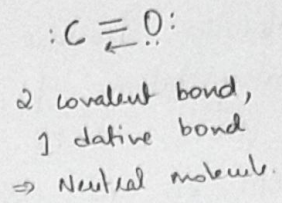 :C ⇚ Ö:
2 covalent bond,
1 dative bond
⇒ Neutral molecule.